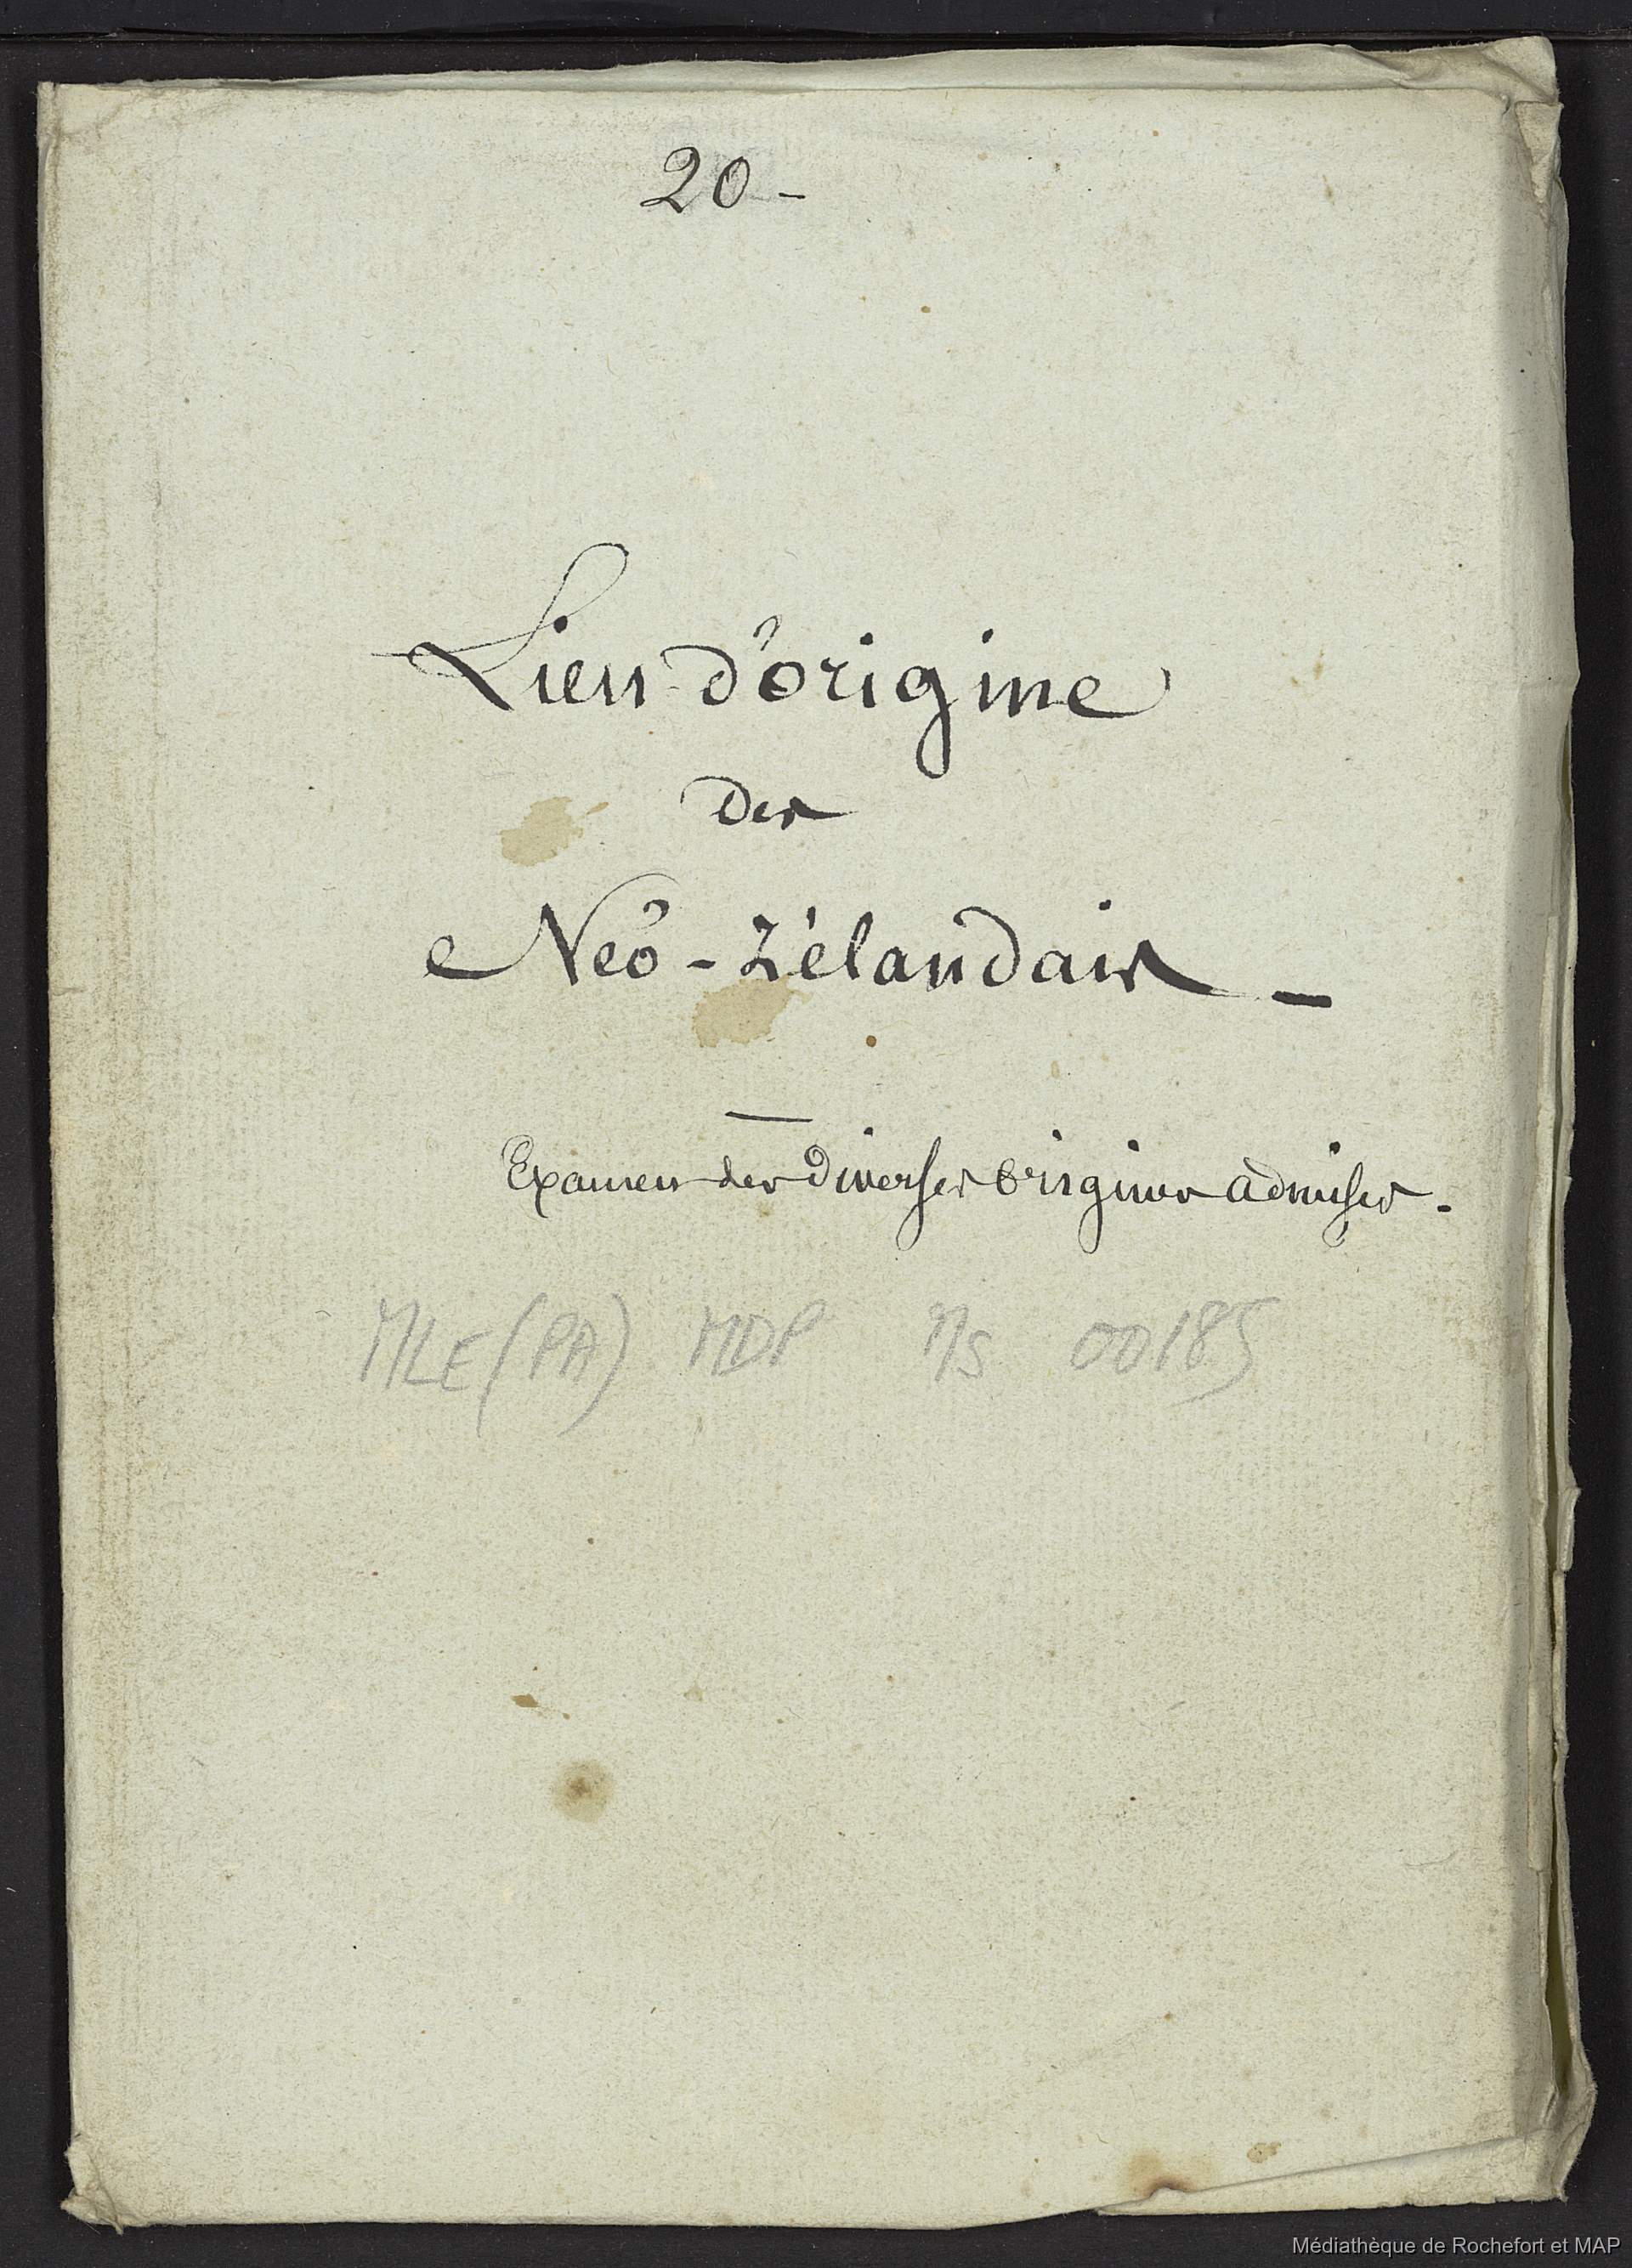 20-
Lieu d'origine
des
Néo-Zélandais -
Examen des diverses origines admises.
MLE (PA) MDP Ms 00185
Médiathèque de Rochefort et MAP